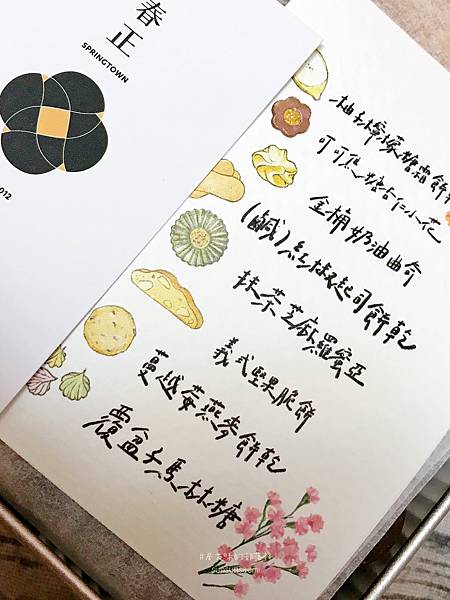 春正
SPRINGTOWN
012
柚子檸檬糖霜餅乾
可可焦糖杏仁小花
金桶奶油曲奇
(鹹)紅椒起司餅乾
抹茶芝麻羅蜜亞
義式堅果脆餅
蔓越莓燕麥餅乾
覆盆子馬林糖